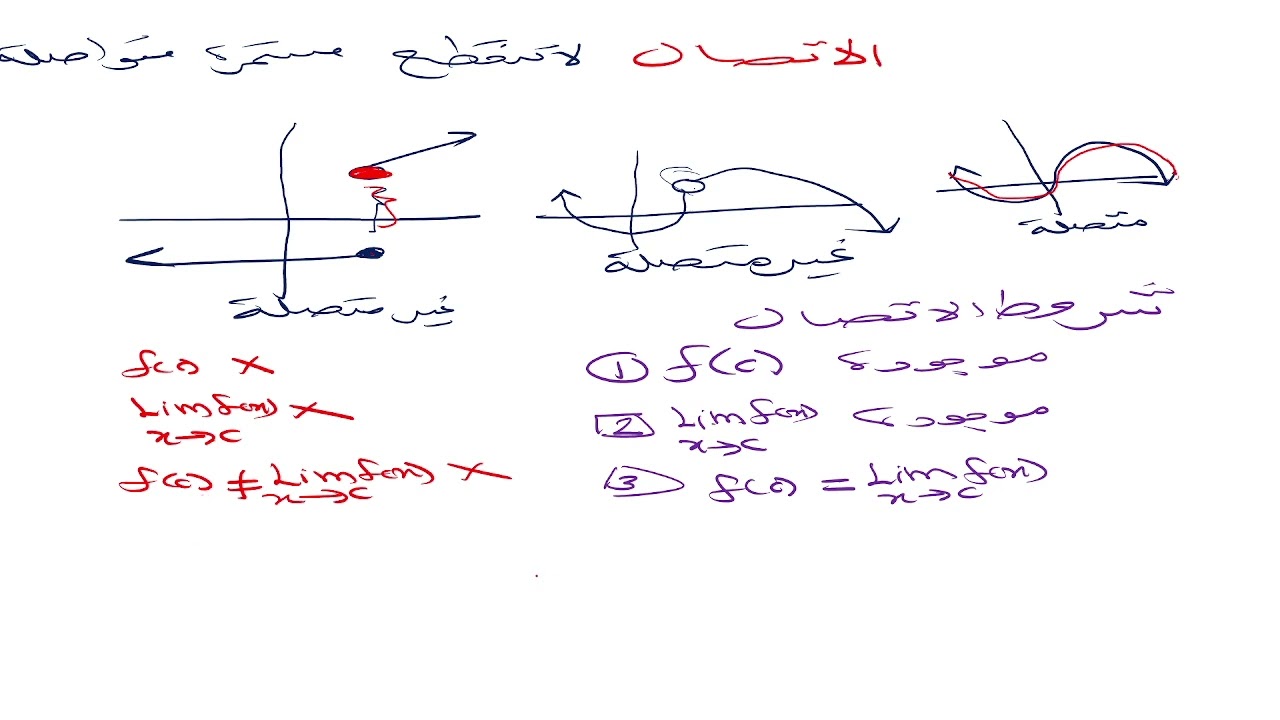 الاتصال لا تنقطع مستمرة متواصلة
متصلة
غير متصلة
غير متصلة
شروط الاتصال
① f(c) موجودة
2 Lim f(x) موجودة
x→c
3 f(c) = Lim f(x)
x→c
f(c) ×
Lim f(x) ×
x→c
f(c) ≠ Lim f(x) ×
x→c